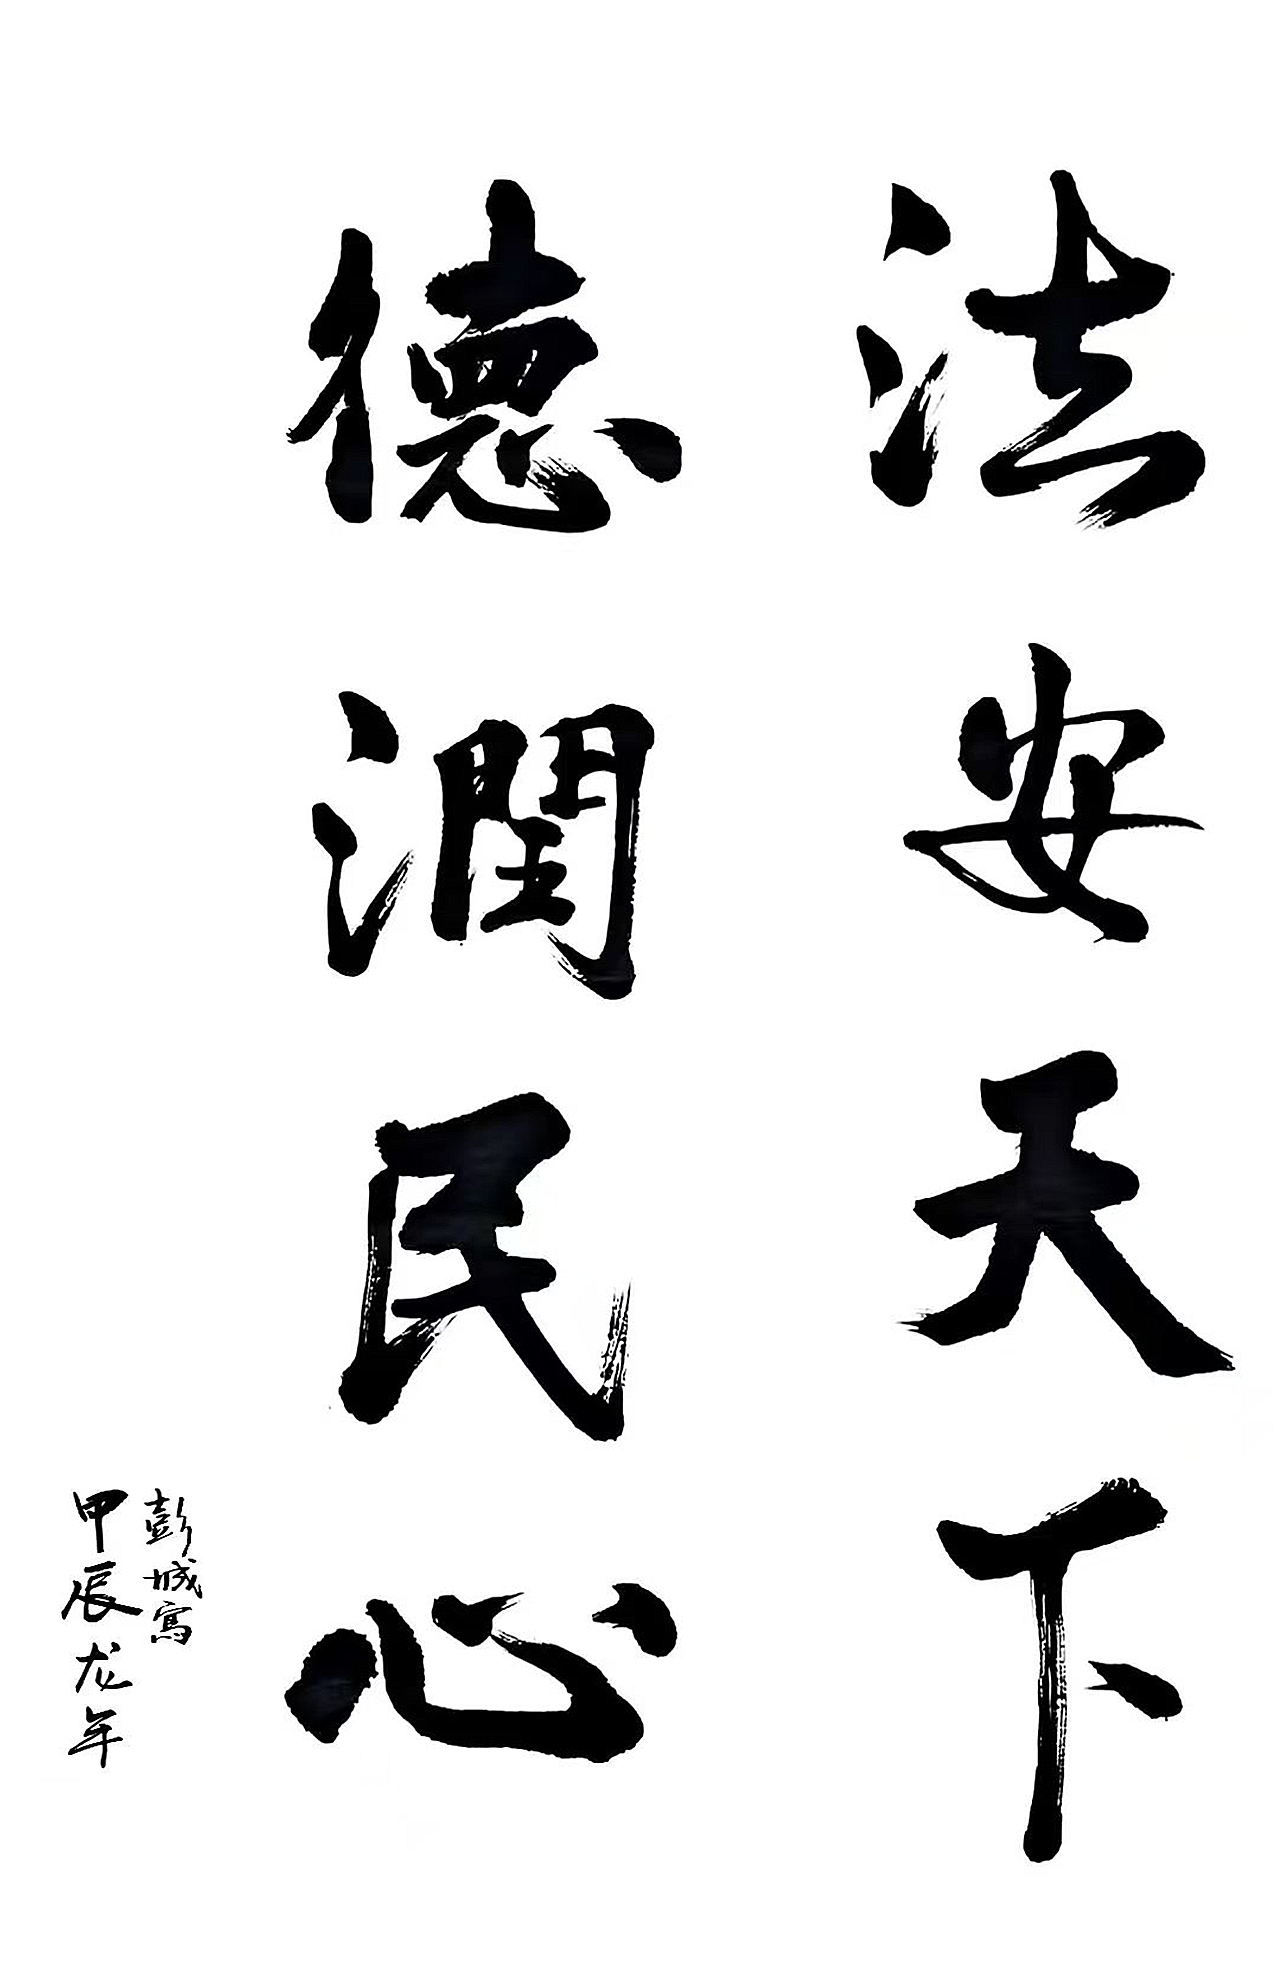 法安天下
德潤民心
彭城寫
甲辰龙年